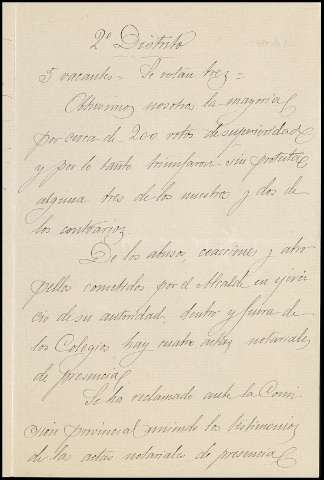 2º Distrito
5 vacantes = Se votan tres =
Obtuvimos nosotros la mayoria
por cerca de 200 votos de superioridad
y por lo tanto triunfaron sin protesta
alguna tres de los nuestros y dos de
los contrarios
De los abusos, coacciones y atro
pellos cometidos por el Alcalde en ejerci
cio de su autoridad, dentro y fuera de
los Colegios hay cuatro actas notariales
de presencia
Se ha reclamado ante la Comi
sión provincial uniendo los testimonios
de las actas notariales de presencia